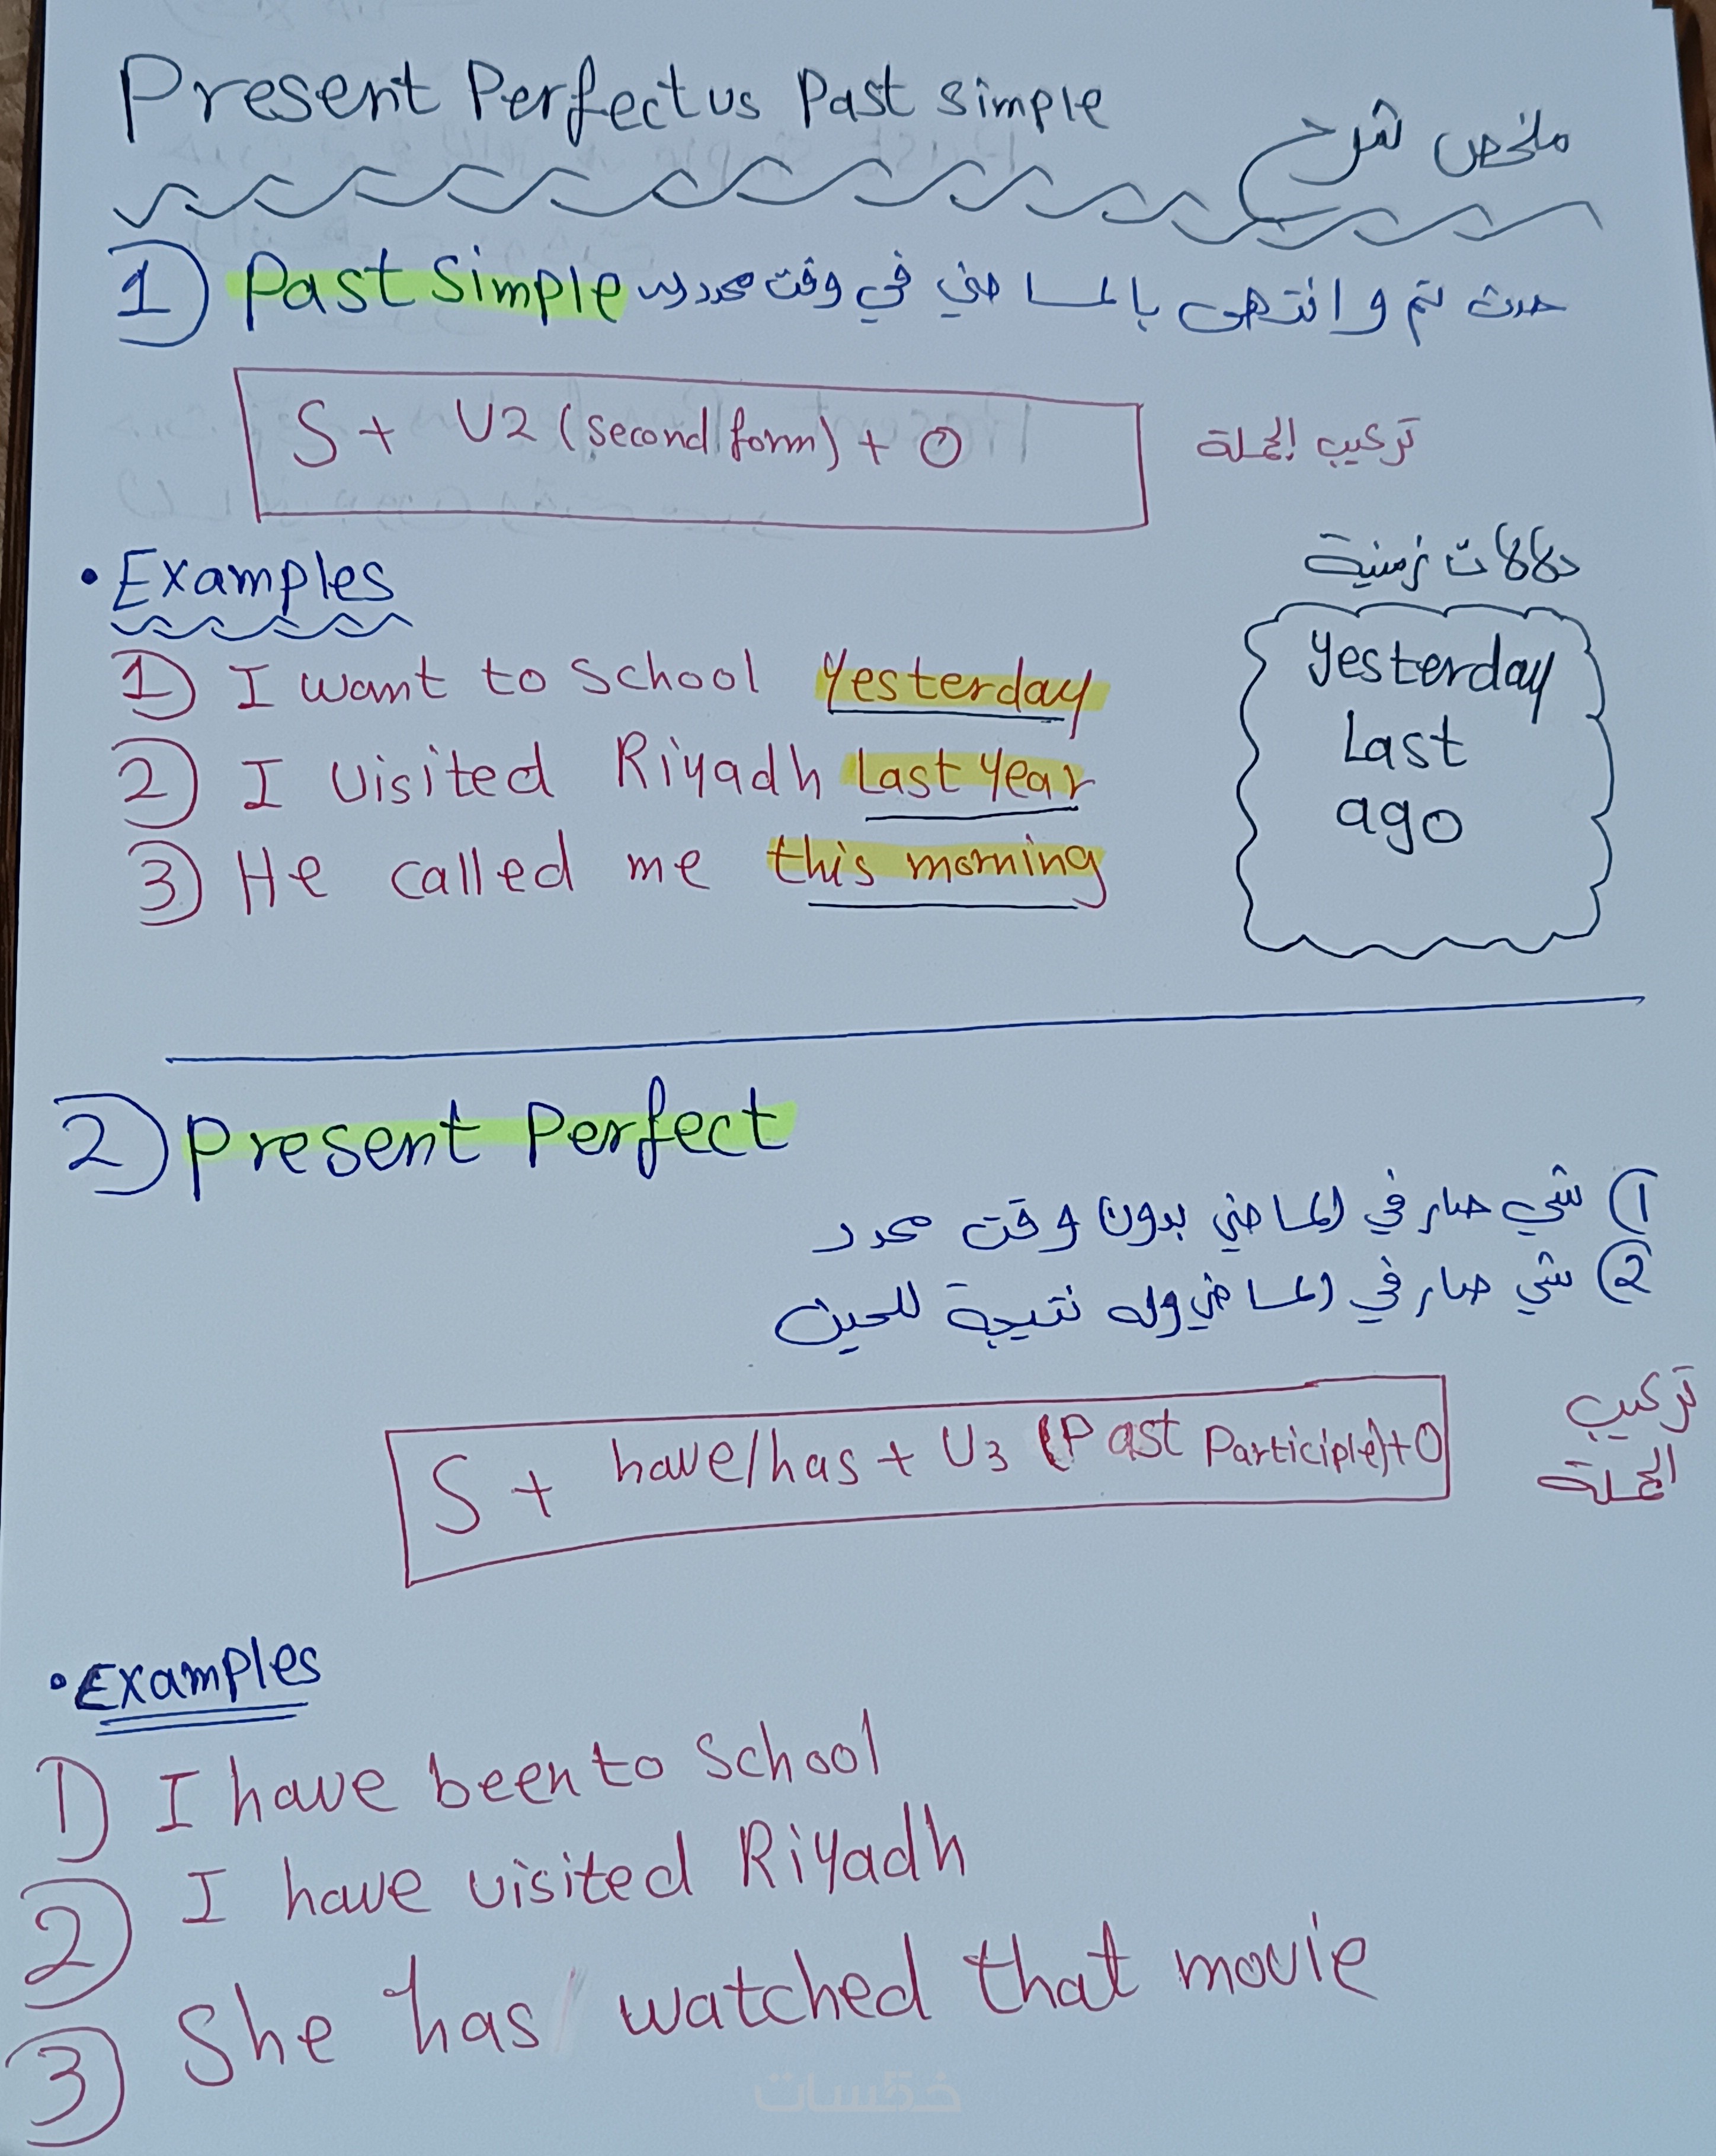 Present Perfect vs Past simple
ملخص شرح
1) Past Simple حدث تم و انتهى بالماضي في وقت محدد
S + V2 (second form) + O
تركيب الجملة
• Examples
دلالات زمنية
1) I want to school yesterday
2) I visited Riyadh last year
3) He called me this morning
yesterday
Last
ago
2) Present Perfect
1) شي صار في الماضي بدون وقت محدد
2) شي صار في الماضي وله نتيجة للحين
S + have/has + V3 (Past Participle) + O
تركيب
الجملة
• Examples
1) I have been to school
2) I have visited Riyadh
3) She has watched that movie
خمسات